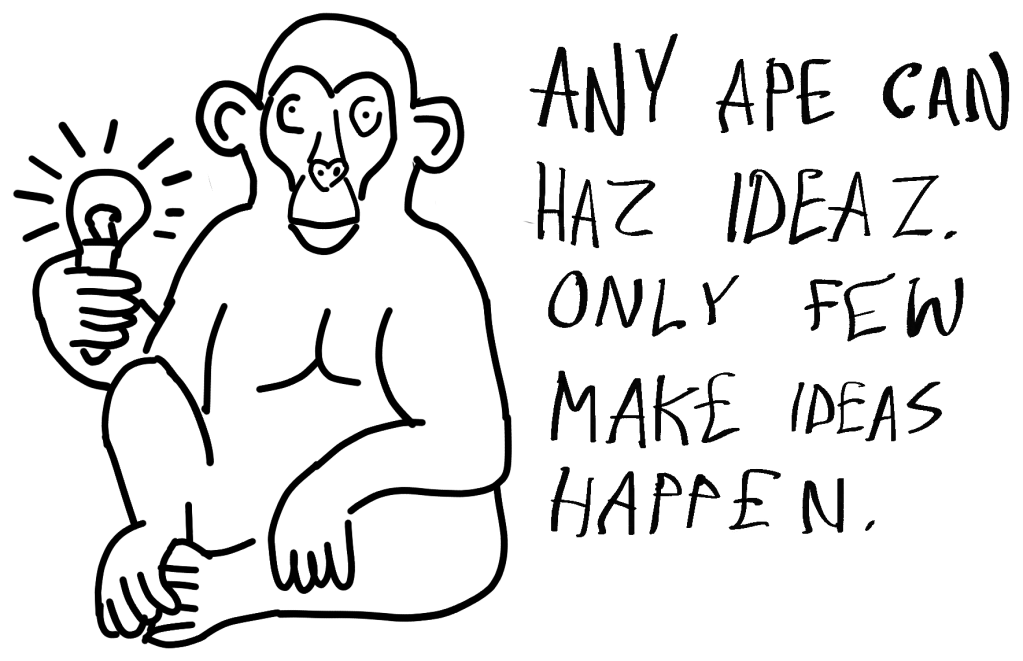 ANY APE CAN
HAZ IDEAZ.
ONLY FEW
MAKE IDEAS
HAPPEN.